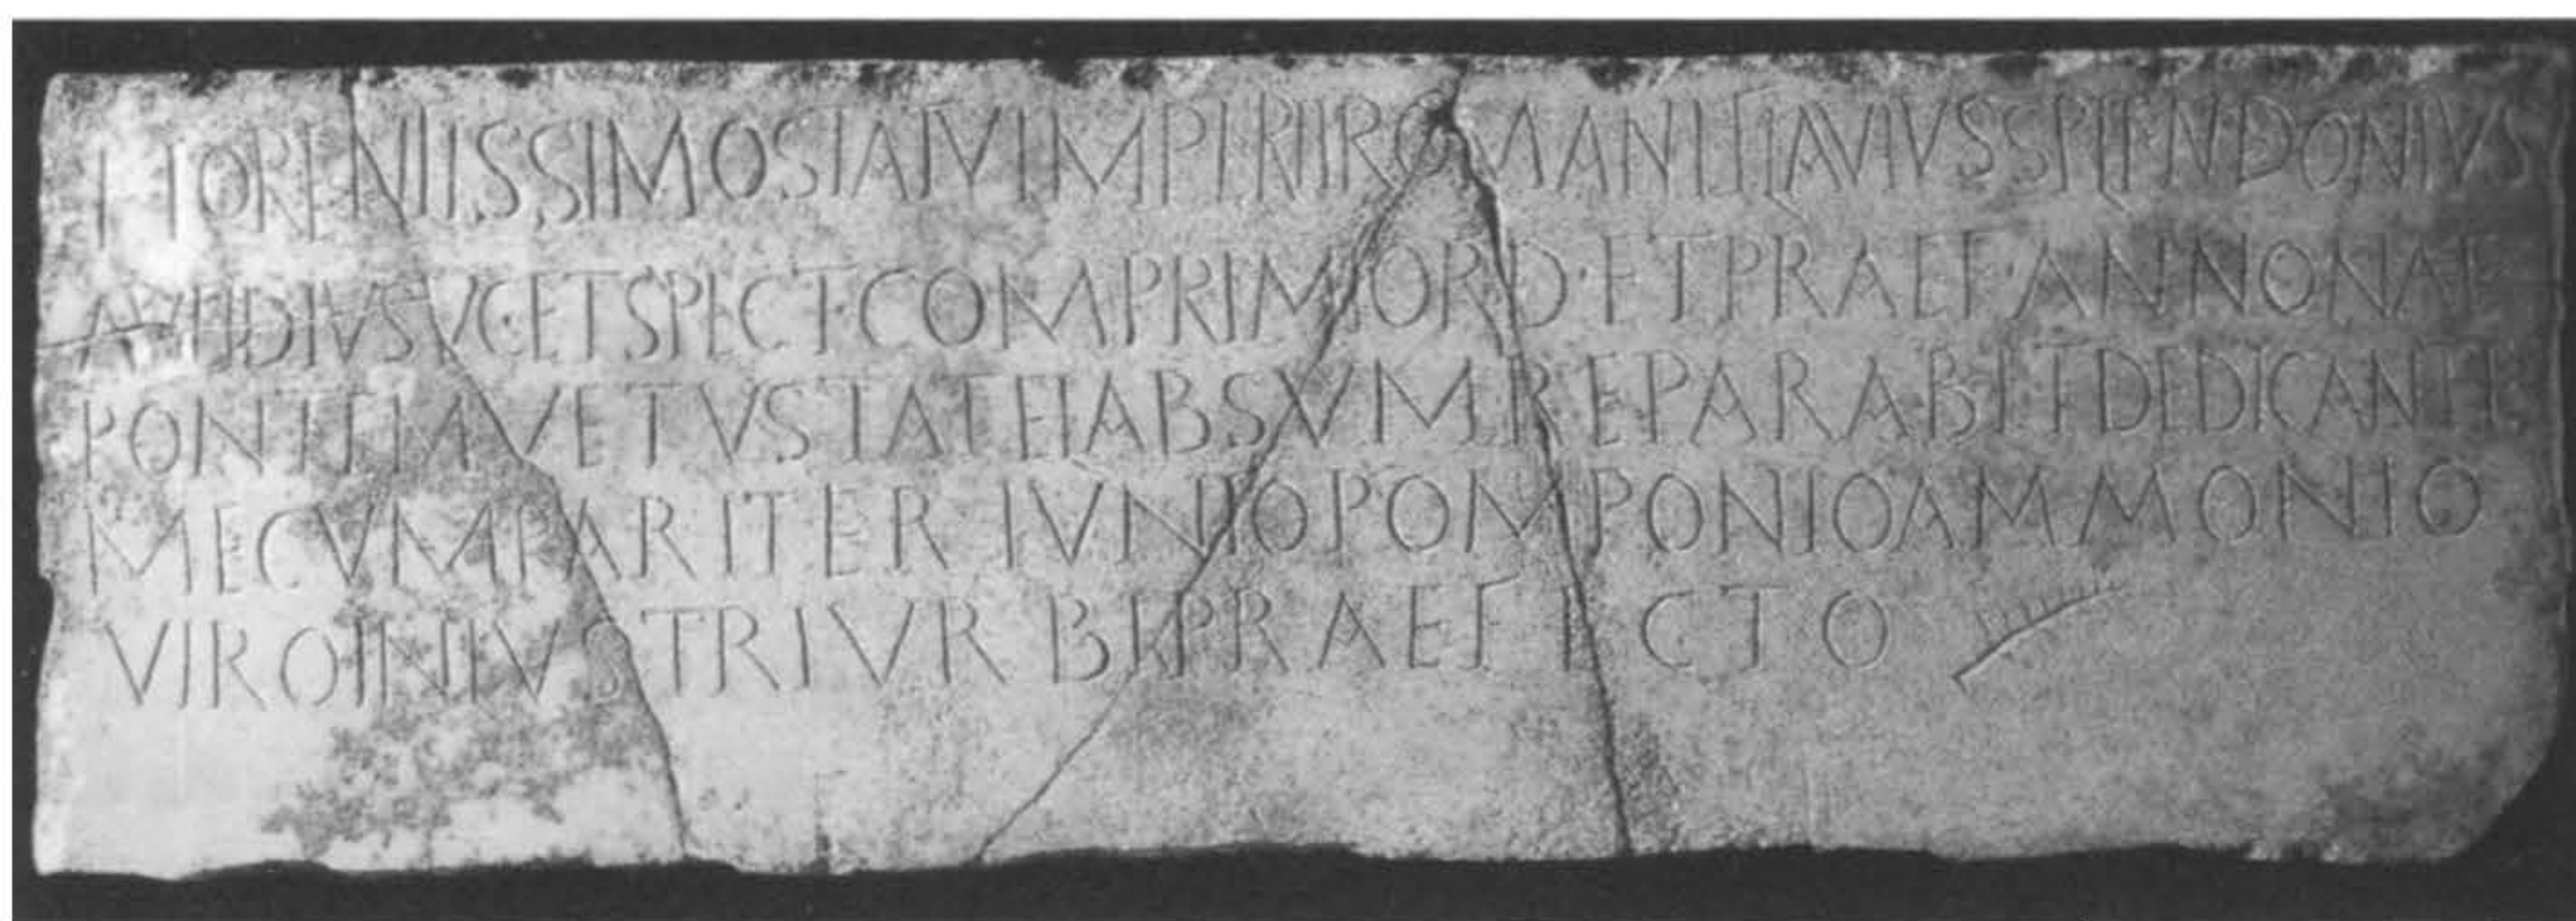 FLORENTISSIMO STATV IMPERII ROMANI FLAVIVS SPLENDONIVS
AVFIDIVS VC·ET SPECT·COM PRIM·ORD·ET PRAEF·ANNONAE
PONTEM A VETVSTATE HABSVM REPARABIT DEDICANTE
MECVM PARITER IVNIO POMPONIO AMMONIO
VIRO INIVSTRI VRBI PRAEFECTO